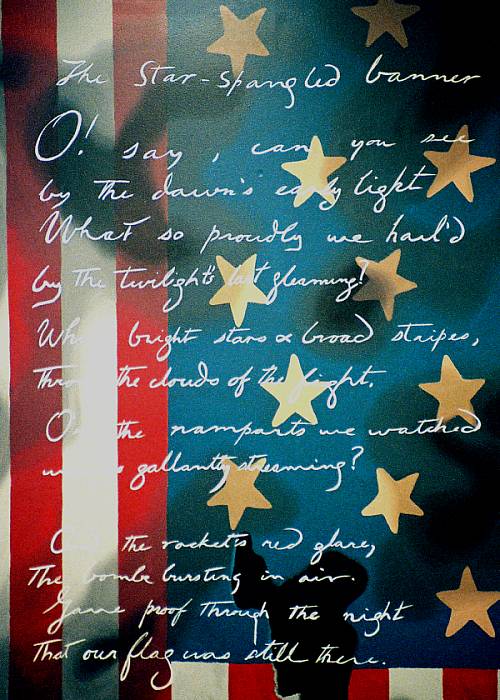 The Star-Spangled banner
O! say, can you see
by the dawn's early light
What so proudly we hail'd
by the twilight's last gleaming?
bright stars & broad stripes,
Thro the clouds of the fight,
O the ramparts we watched
gallantly streaming?
the rocket's red glare,
The bombs bursting in air.
Gave proof through the night
That our flag was still there.